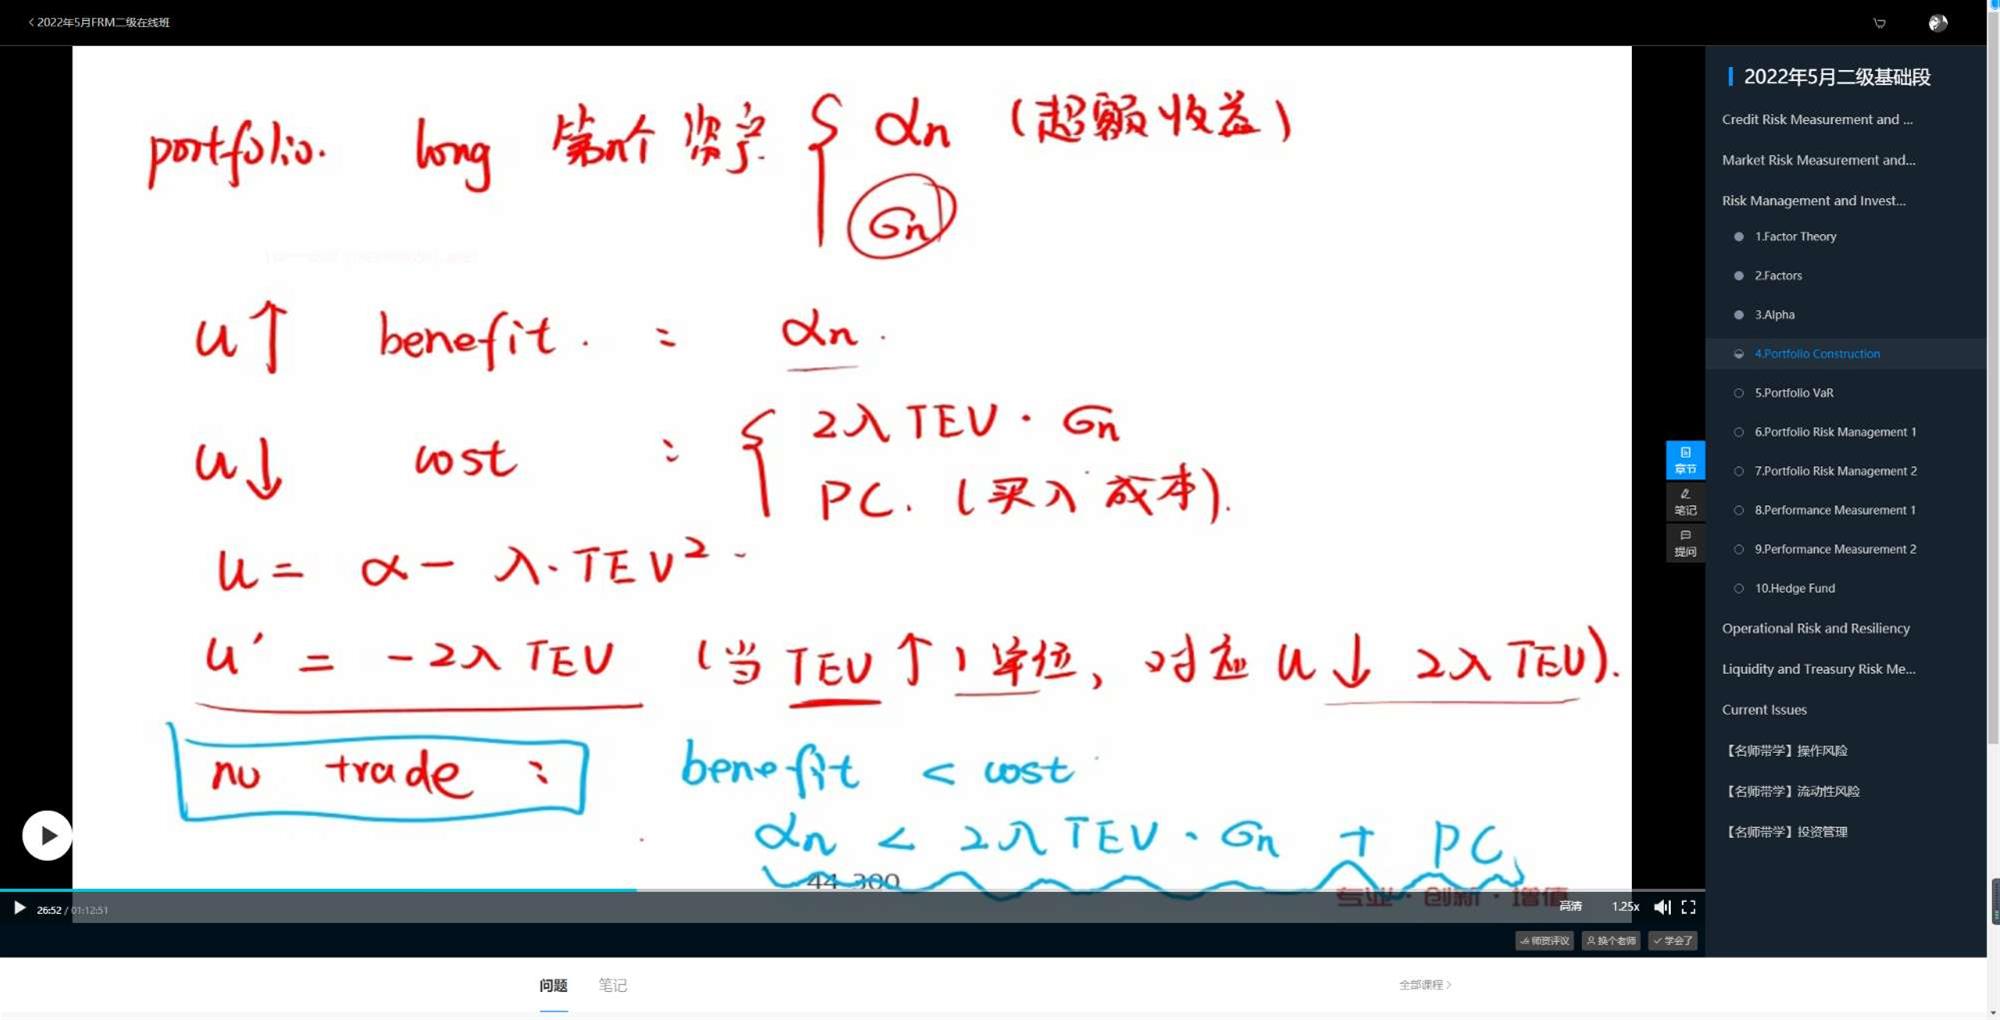 2022年5月FRM二级在线班
portfolio. long 第n个 资产 { αn (超额收益)
σn
u↑ benefit. : αn.
u↓ cost : { 2λTEV·σn
PC. (买入成本).
u = α - λ·TEV²
u' = -2λTEV (当 TEV ↑ 1单位, 对应 u ↓ 2λTEV).
no trade : benefit < cost
αn < 2λTEV·σn + PC
44-300
专业·创新·增值
26:52 / 01:12:51
高清 1.25x
师资评议 换个老师 学会了
章节
笔记
提问
2022年5月二级基础段
Credit Risk Measurement and ...
Market Risk Measurement and...
Risk Management and Invest...
1.Factor Theory
2.Factors
3.Alpha
4.Portfolio Construction
5.Portfolio VaR
6.Portfolio Risk Management 1
7.Portfolio Risk Management 2
8.Performance Measurement 1
9.Performance Measurement 2
10.Hedge Fund
Operational Risk and Resiliency
Liquidity and Treasury Risk Me...
Current Issues
【名师带学】操作风险
【名师带学】流动性风险
【名师带学】投资管理
问题 笔记 全部课程